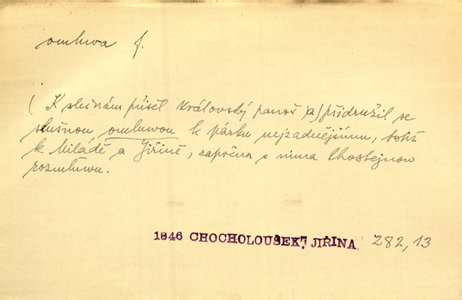 omluva f.
( K slečnám přišel královský panoš a) přidružil se
slušnou omluvou k párku nejzadnějšímu, totiž
k Miládě a Jiřině, započna s nima lhostejnou
rozmluvu.
1846 CHOCHOLOUŠEK, JIŘINA 282,13